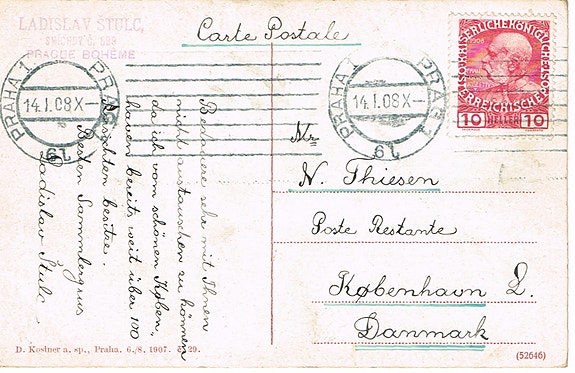 LADISLAV ŠTULC,
SMÍCHOV Č. 529
PRAGUE BOHÊME
Carte Postale
PRAHA 1 PRAG 1
14.I.08X-
61
PRAHA 1 PRAG 1
14.I.08X-
61
1908
KAISERLICHE KÖNIGLICHE
ÖSTERREICHISCHE
10 HELLER 10
Bedauere sehr mit Ihnen
nicht austauschen zu können
da ich vom schönen Kjöben-
haven bereits weit über 100
Ansichten besitze.
Besten Sammlergruss
Ladislav Štulc
Mr.
N. Thiesen
Poste Restante
København L.
Danmark
D. Kosiner a. sp., Praha. 6./8. 1907. č. 29.
(52646)